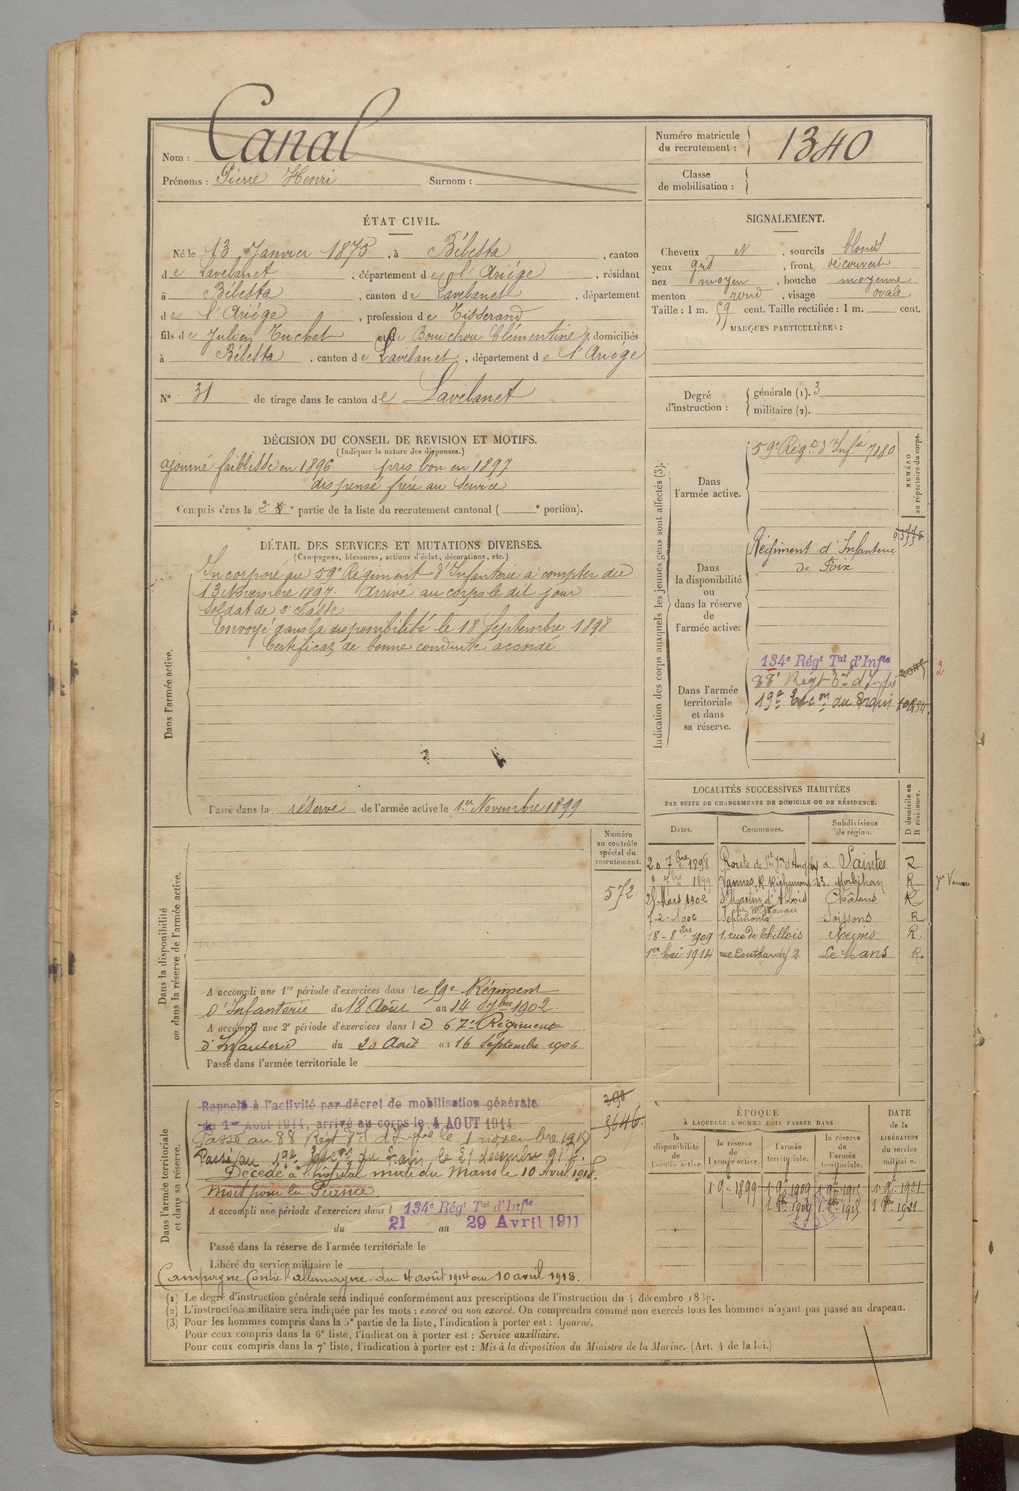 Nom : Canal
Prénoms : Pierre Henri Surnom :
Numéro matricule du recrutement : 1340
Classe de mobilisation :
ÉTAT CIVIL.
Né le 13 Janvier 1875, à Bélesta, canton
de Lavelanet, département de l'Ariége, résidant
à Bélesta, canton de Lavelanet, département
de l'Ariége, profession de Tisserand
fils de Julien Tuchet et de Bouichou Clémentine, domiciliés
à Bélesta, canton de Lavelanet, département de l'Ariége
N° 31 de tirage dans le canton de Lavelanet
SIGNALEMENT.
Cheveux N, sourcils blonds
yeux gris, front découvert
nez moyen, bouche moyenne
menton rond, visage ovale
Taille : 1 m. 59 cent. Taille rectifiée : 1 m. cent.
MARQUES PARTICULIÈRES :
Degré d'instruction : générale (1). 3
militaire (2).
DÉCISION DU CONSEIL DE REVISION ET MOTIFS.
(Indiquer la nature des dispenses.)
ajourné faiblesse en 1896 pris bon en 1897
dispensé frère au service
Compris dans la 2e partie de la liste du recrutement cantonal ( e portion).
DÉTAIL DES SERVICES ET MUTATIONS DIVERSES.
(Campagnes, blessures, actions d'éclat, décorations, etc.)
Dans l'armée active.
Incorporé au 59e Régiment d'Infanterie à compter du
13 Novembre 1897. Arrivé au corps le dit jour
Soldat de 2e classe
Envoyé dans la disponibilité le 18 Septembre 1898
Certificat de bonne conduite accordé
Passé dans la réserve de l'armée active le 1er Novembre 1899
Indication des corps auxquels les jeunes gens sont affectés (3).
NUMÉRO au répertoire du corps.
Dans l'armée active.
59e Régt d'Infie 7180
Dans la disponibilité ou dans la réserve de l'armée active.
Régiment d'Infanterie
de Foix
Dans l'armée territoriale et dans sa réserve.
134e Régt Tal d'Infie
88e Régt Tal d'Infie
19e Escon du Train
2
LOCALITÉS SUCCESSIVES HABITÉES
PAR SUITE DE CHANGEMENTS DE DOMICILE OU DE RÉSIDENCE.
Dates. Communes. Subdivisions de région. D domicile ou R résidence.
20 7bre 1898 Route de St Jean d'Angely à Saintes R
1899 Vannes, R. Richemont 13. Morbihan R
25 Mars 1902 Châlons R
7-2-1906 Septmonts Soissons R
18-8bre 1909 1, rue de Thillois Reims R.
1er Mai 1914 2 Le Mans R.
Dans la disponibilité ou dans la réserve de l'armée active.
Numéro au contrôle spécial du recrutement.
572
A accompli une 1re période d'exercices dans le 59e Régiment
d'Infanterie du 18 Août au 14 7bre 1902
A accompli une 2e période d'exercices dans le 67e Régiment
d'Infanterie du 20 Août au 16 Septembre 1906
Passé dans l'armée territoriale le
Dans l'armée territoriale et dans sa réserve.
Rappelé à l'activité par décret de mobilisation générale
du 1er Août 1914, arrivé au corps le 4 AOUT 1914
Passé au 88 Régt Tal d'Infie le 1 novembre 1917
Passé au 19e Escon du Train le 21 décembre 917.
Décédé à l'hôpital mixte du Mans le 10 Avril 1918.
Mort pour la France.
A accompli une période d'exercices dans le 134e Régt Tal d'Infie
du 21 au 29 Avril 1911
Passé dans la réserve de l'armée territoriale le
Libéré du service militaire le
Campagne Contre l'allemagne du 4 août 1914 au 10 avril 1918.
ÉPOQUE
À LAQUELLE L'HOMME DOIT PASSER DANS
la disponibilité de l'armée active. la réserve de l'armée active. l'armée territoriale. la réserve de l'armée territoriale.
DATE de la LIBÉRATION du service militaire.
1 9bre 1899 1 9bre 1909 1 9bre 1915 1 9bre 1921
1 8bre 1909 1 8bre 1915 1 8bre 1921
(1) Le degré d'instruction générale sera indiqué conformément aux prescriptions de l'instruction du 4 décembre 1889.
(2) L'instruction militaire sera indiquée par les mots : exercé ou non exercé. On comprendra comme non exercés tous les hommes n'ayant pas passé au drapeau.
(3) Pour les hommes compris dans la 5e partie de la liste, l'indication à porter est : Ajourné.
Pour ceux compris dans la 6e liste, l'indication à porter est : Service auxiliaire.
Pour ceux compris dans la 7e liste, l'indication à porter est : Mis à la disposition du Ministre de la Marine. (Art. 4 de la loi.)